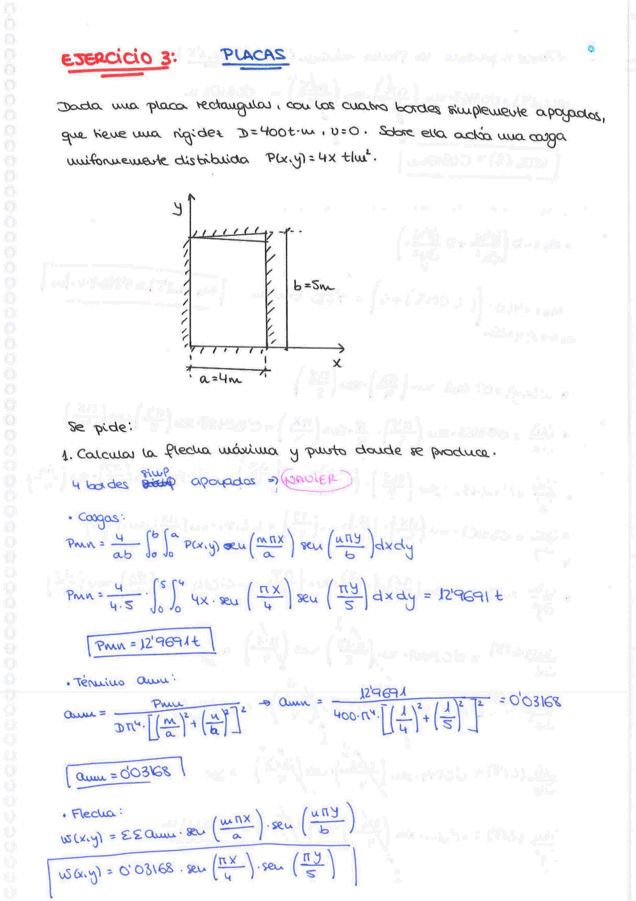 EJERCICIO 3: PLACAS
Dada una placa rectangular, con los cuatro bordes simplemente apoyados,
que tiene una rigidez D=400t·m, υ=0. Sobre ella actúa una carga
uniformemente distribuida P(x,y)=4x t/m².
y
b=5m
x
a=4m
Se pide:
1. Calcular la flecha máxima y punto donde se produce.
simp
4 bordes apoyados => NAVIER
• Cargas:
Pmn = 4/ab ∫₀ᵇ ∫₀ᵃ P(x,y) sen(mπx/a) sen(nπy/b) dxdy
Pmn = 4/4·5 · ∫₀⁵ ∫₀⁴ 4x · sen(πx/4) sen(πy/5) dxdy = 12'9691 t
Pmn = 12'9691t
• Término amn:
amn = Pmn / Dπ⁴·[(m/a)²+(n/b)²]² → amn = 12'9691 / 400·π⁴·[(1/4)²+(1/5)²]² = 0'03168
amn = 0'03168
• Flecha:
w(x,y) = ΣΣ amn · sen(mπx/a) · sen(nπy/b)
w(x,y) = 0'03168 · sen(πx/4) · sen(πy/5)